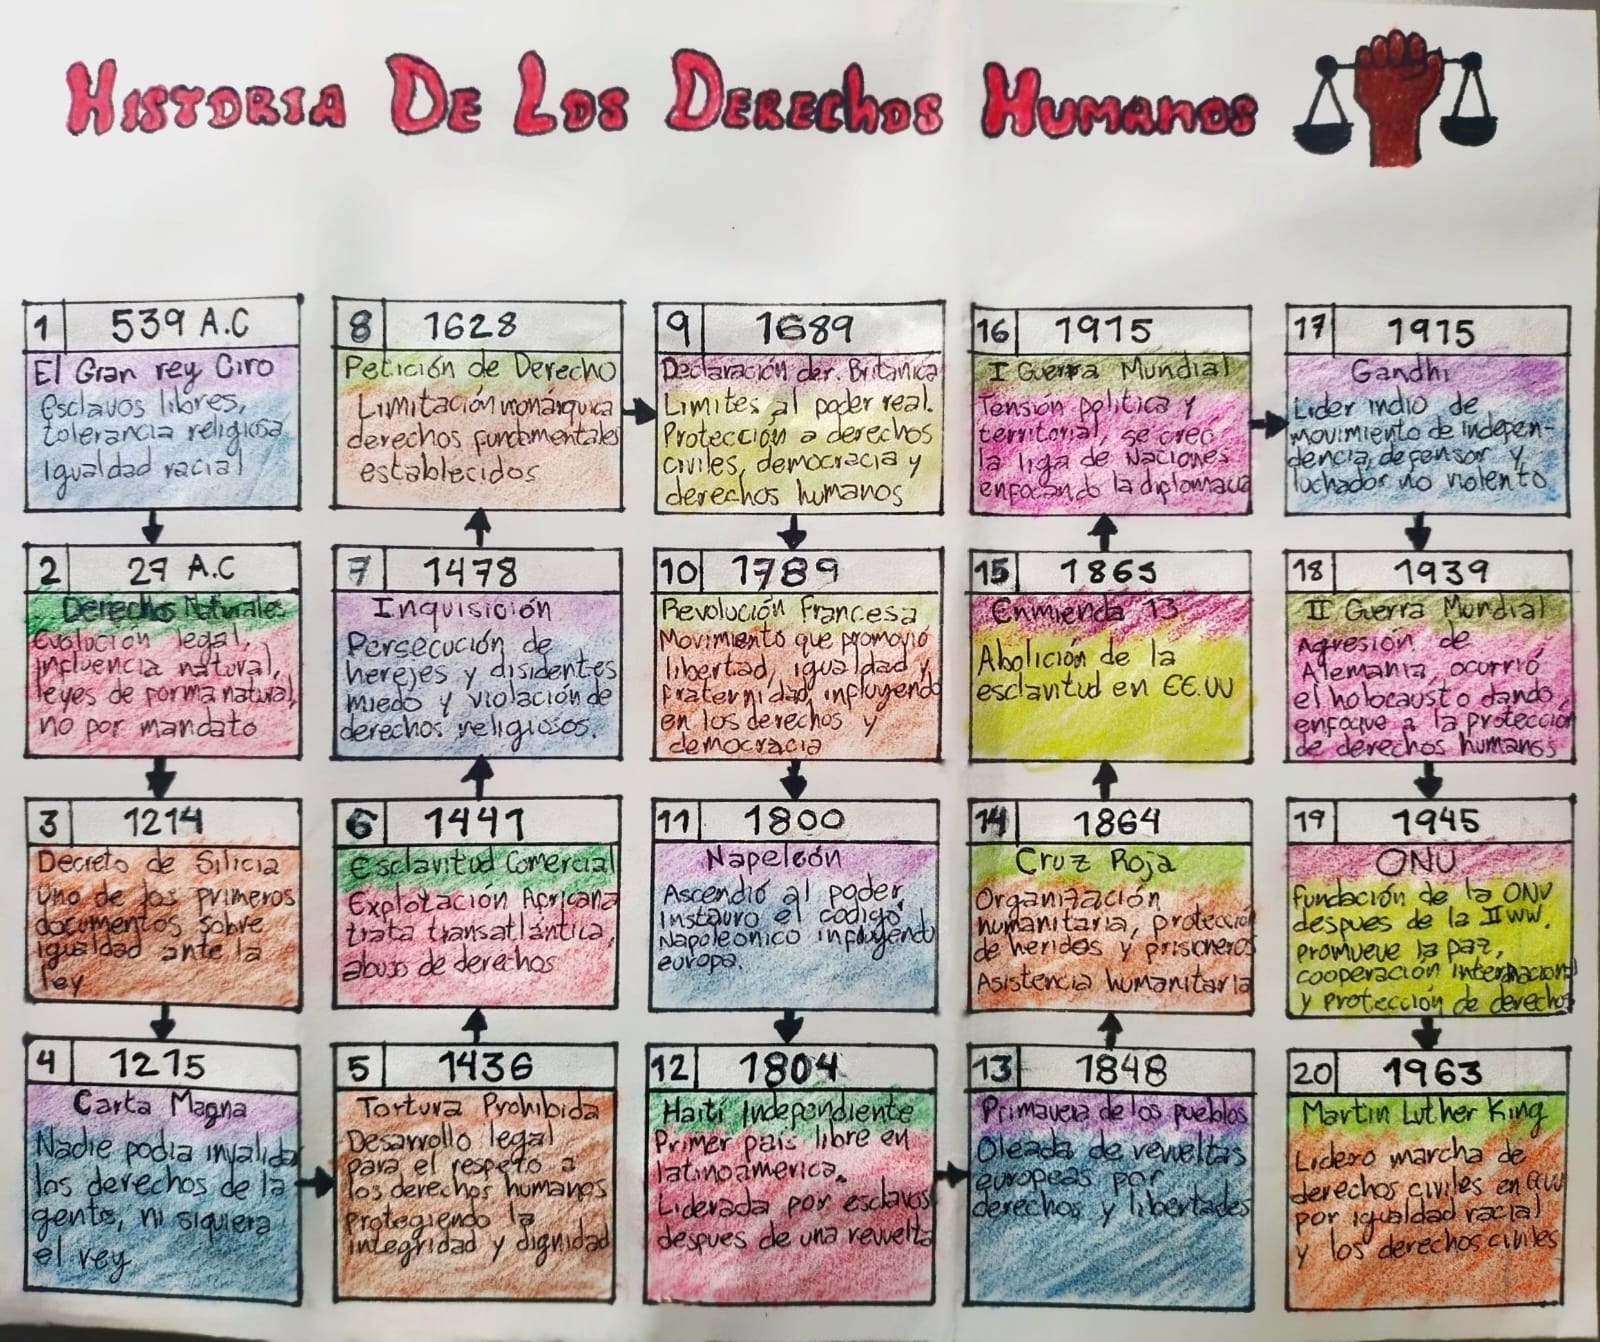 Historia De Los Derechos Humanos
1 539 A.C
El Gran rey Ciro
esclavos libres,
tolerancia religiosa
igualdad racial
2 27 A.C
Derechos Naturales
Evolución legal,
influencia natural,
leyes de forma natural,
no por mandato
3 1214
Decreto de Silicia
Uno de los primeros
documentos sobre
igualdad ante la
ley
4 1215
Carta Magna
Nadie podia invalidar
los derechos de la
gente, ni siquiera
el rey
5 1436
Tortura Prohibida
Desarrollo legal
para el respeto a
los derechos humanos
protegiendo la
integridad y dignidad
6 1441
Esclavitud Comercial
Explotación Africana
trata transatlántica,
abuso de derechos
7 1478
Inquisición
Persecución de
herejes y disidentes
miedo y violación de
derechos religiosos.
8 1628
Petición de Derecho
Limitación monárquica
derechos fundamentales
establecidos
9 1689
Declaración der. Britanica
Limites al poder real.
Protección a derechos
civiles, democracia y
derechos humanos
10 1789
Revolución Francesa
Movimiento que promovió
libertad, igualdad y
fraternidad, influyendo
en los derechos y
democracia
11 1800
Napeleón
Ascendió al poder,
instauro el codigo
Napoleonico influyendo
europa.
12 1804
Haití Independiente
Primer pais libre en
latinoamerica.
Liderada por esclavos
despues de una revuelta
13 1848
Primavera de los pueblos
Oleada de revueltas
europeas por
derechos y libertades
14 1864
Cruz Roja
Organización
humanitaria, protección
de heridos y prisioneros
Asistencia humanitaria
15 1865
Enmienda 13
Abolición de la
esclavitud en EE.UU
16 1915
I Guerra Mundial
Tensión politica y
territorial, se creó
la liga de Naciones
enfocando la diplomacia
17 1915
Gandhi
Lider indio de
movimiento de indepen-
dencia, defensor y
luchador no violento
18 1939
II Guerra Mundial
Agresión de
Alemania, ocurrió
el holocausto dando
enfoque a la protección
de derechos humanos
19 1945
ONU
fundación de la ONU
despues de la II WW.
promueve la paz,
cooperación internacional
y protección de derechos
20 1963
Martin Luther King
Lidero marcha de
derechos civiles en EEUU
por igualdad racial
y los derechos civiles